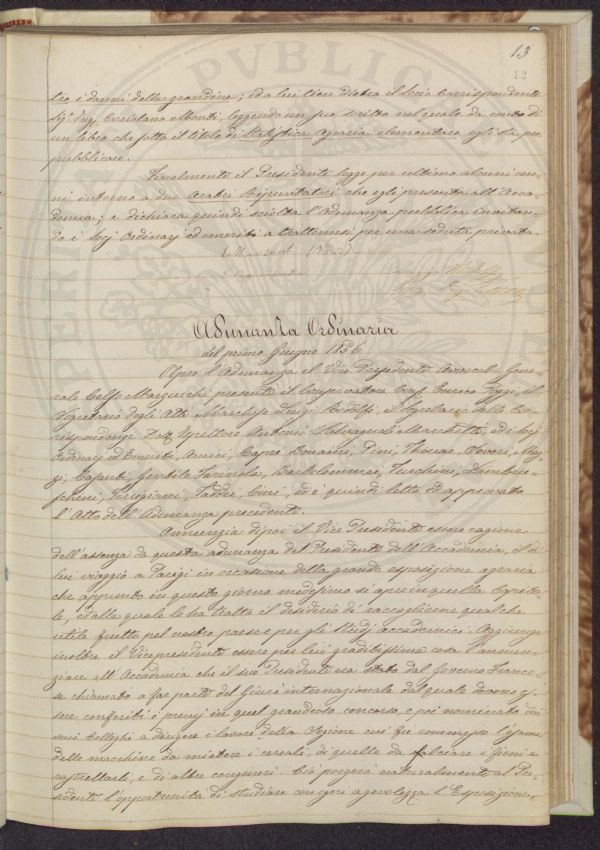 13
12
tro i danni della grandine; ed a lui tien dietro il Socio Corrispondente
Sig. Ing. leggendo un suo scritto nel quale da conto di
un libro che sotto il titolo di Statistica Agraria elementare egli sta per
pubblicare.
Finalmente il Presidente legge per ultimo alcuni cen-
ni intorno a due Aratri che egli presenta all'Acca-
demia; e dichiara quindi sciolta l'Adunanza pubblica invitan-
do i Socj Ordinarj ed emeriti a trattenersi per una seduta privata.
Adunanza Ordinaria
del primo Giugno 1856
Apre l'Adunanza il Vice Presidente Avvocato Gene-
rale Celso Marzucchi presenti il Conservatore Prof. Enrico il
Segretario degli Atti Marchese Luigi Ridolfi, il Segretario delle Cor-
rispondenze Dott. Antonio Salvagnoli Marchetti, ed i Socj
Ordinarj ed Emeriti, Amici, Capei, Bonaini, Pini, Thouar,
Caruel, Gentile Farinola, Bartolommei, Lambru-
schini, Torrigiani, Taddei, ed è quindi letto ed approvato
l'Atto dell'Adunanza precedente.
Annunzia dipoi il Vice Presidente essere cagione
dell'assenza da questa adunanza del Presidente dell'Accademia, il di
lui viaggio a Parigi in occasione della grande esposizione agraria
che appunto in questo giorno medesimo si apre in quella Capita-
le, e dalla quale lo ha tratto il desiderio di raccogliere qualche
utile frutto pel nostro paese e per gli studj accademici. Aggiunge
inoltre il Vicepresidente essere per lui graditissima cosa l'annun-
ziare all'Accademia che il suo Presidente era stato dal Governo France-
se chiamato a far parte del Giurì internazionale dal quale devono es-
sere conferiti i premj in quel grandioso concorso, e poi nominato dai
suoi Colleghi a dirigere i lavori della Sezione cui fu commesso l'esame
delle macchine da mietere i cereali, di quelle da falciare i fieni e
rastrellarli, e di altre congeneri. Ciò porgerà naturalmente al Pre-
sidente l'opportunità di studiare con ogni agevolezza l'Esposizione,